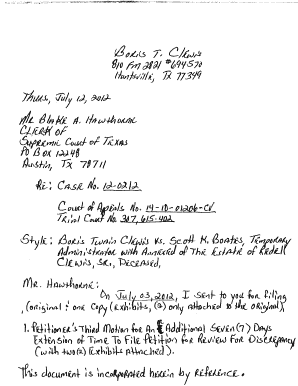 Boris T. Clewis
810 FM 2821 #694570
Huntsville, TX 77349
Thurs, July 12, 2012
Mr Blake A. Hawthorne
Clerk of
Supreme Court of Texas
PO Box 12248
Austin, TX 78711
Re: Case No. 12-0212
Court of Appeals No. 14-10-01206-CV
Trial Court No. 387,615-402
Style: Boris Twain Clewis vs. Scott M. Boates, Temporary
Administrator with Annexed of The Estate of Redell
Clewis, Sr., Deceased.
Mr. Hawthorne:
On July 03, 2012, I sent to you for filing
(original & one copy (exhibits, (2) only attached to the original)
1. Petitioner's Third Motion for An Additional Seven (7) Days
Extension of Time To File Petition for Review For Discrepancy
(with two(2) Exhibits Attached).
This document is incorporated herein by reference.